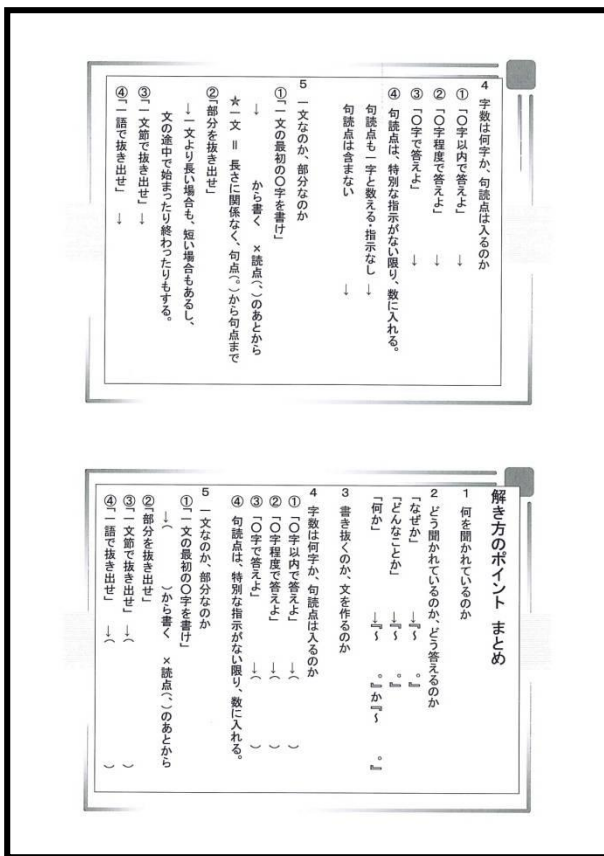 4 字数は何字か、句読点は入るのか
①「〇字以内で答えよ」 ↓
②「〇字程度で答えよ」 ↓
③「〇字で答えよ」 ↓
④ 句読点は、特別な指示がない限り、数に入れる。
句読点も一字と数える・指示なし ↓
句読点は含まない ↓
5 一文なのか、部分なのか
①「一文の最初の〇字を書け」
↓ から書く ×読点(、)のあとから
☆一文 = 長さに関係なく、句点(。)から句点まで
②「部分を抜き出せ」
↓一文より長い場合も、短い場合もあるし、
文の途中で始まったり終わったりもする。
③「一文節で抜き出せ」 ↓
④「一語で抜き出せ」 ↓
解き方のポイント まとめ
1 何を聞かれているのか
2 どう聞かれているのか、どう答えるのか
「なぜか」 ↓『~ 。』
「どんなことか」 ↓『~ 。』
「何か」 ↓『~ 。』か『~ 。』
3 書き抜くのか、文を作るのか
4 字数は何字か、句読点は入るのか
①「〇字以内で答えよ」 ↓( )
②「〇字程度で答えよ」 ↓( )
③「〇字で答えよ」 ↓( )
④ 句読点は、特別な指示がない限り、数に入れる。
5 一文なのか、部分なのか
①「一文の最初の〇字を書け」
↓( )から書く ×読点(、)のあとから
②「部分を抜き出せ」
③「一文節で抜き出せ」 ↓( )
④「一語で抜き出せ」 ↓( )